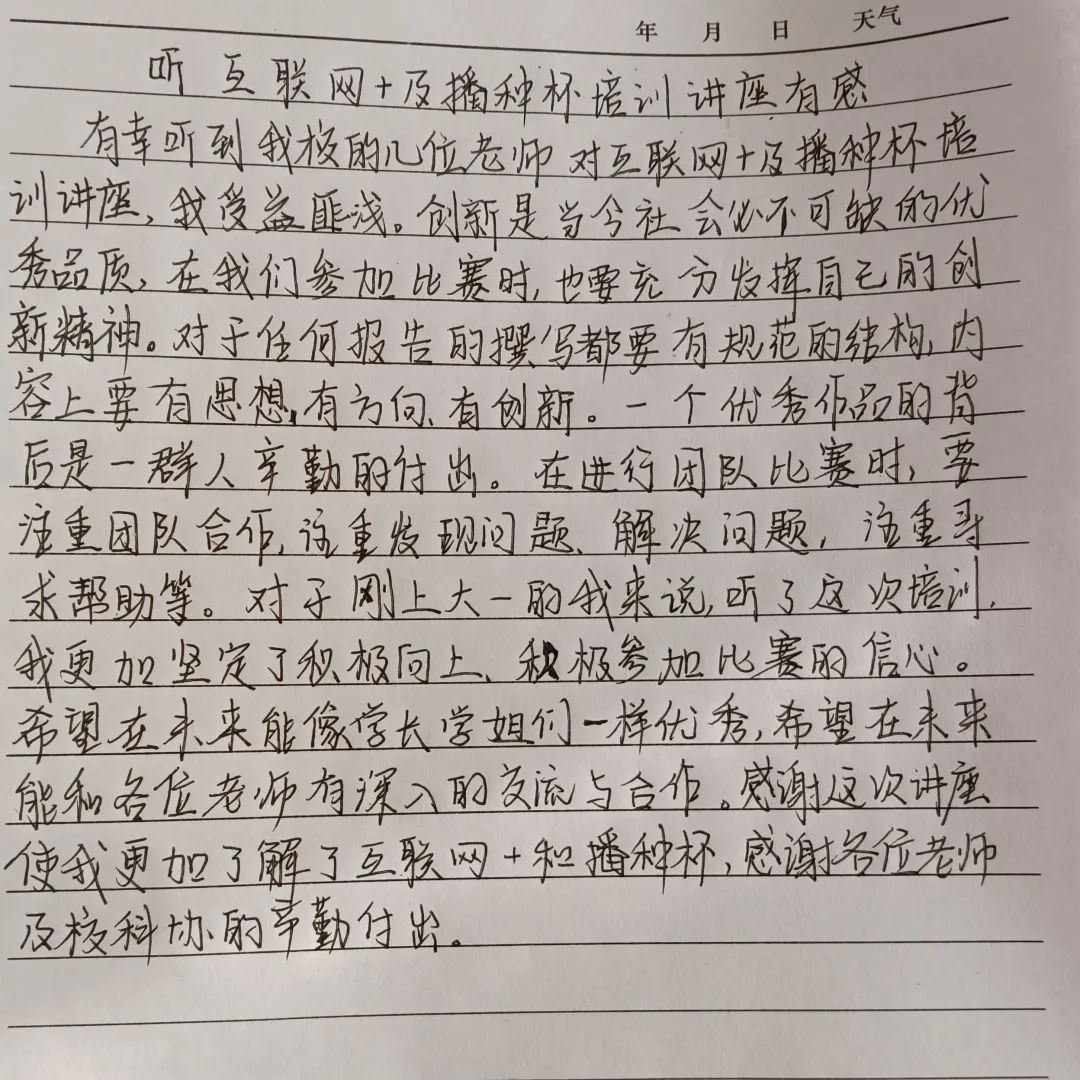 年 月 日 天气
听互联网+及播种杯培训讲座有感
有幸听到我校的几位老师对互联网+及播种杯培
训讲座，我受益匪浅。创新是当今社会必不可缺的优
秀品质，在我们参加比赛时，也要充分发挥自己的创
新精神。对于任何报告的撰写都要有规范的结构，内
容上要有思想，有方向、有创新。一个优秀作品的背
后是一群人辛勤的付出。在进行团队比赛时，要
注重团队合作，注重发现问题、解决问题，注重寻
求帮助等。对于刚上大一的我来说，听了这次培训，
我更加坚定了积极向上、积极参加比赛的信心。
希望在未来能像学长学姐们一样优秀，希望在未来
能和各位老师有深入的交流与合作。感谢这次讲座
使我更加了解了互联网+和播种杯，感谢各位老师
及校科协的辛勤付出。